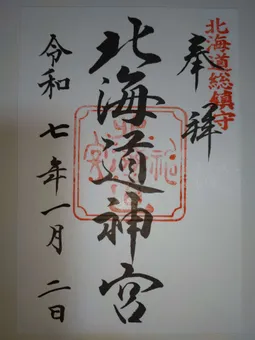 北海道総鎮守
奉拝
北海道神宮
令和七年一月二日